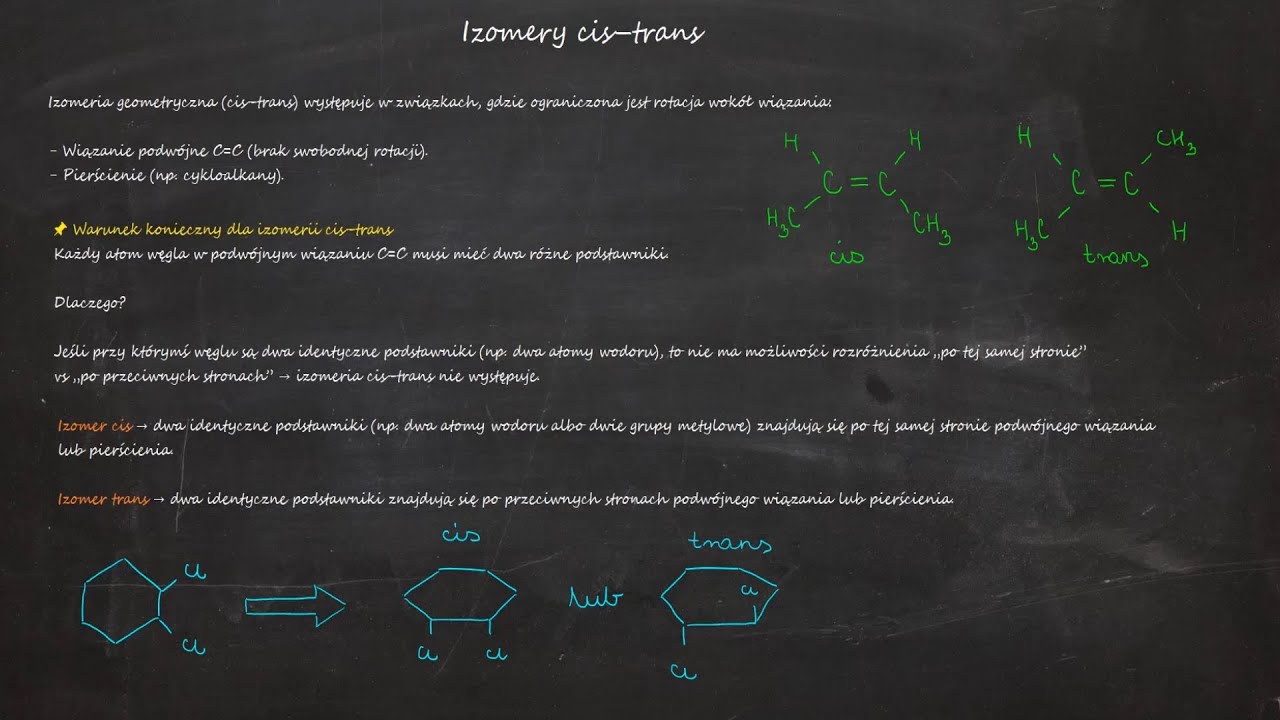 Izomery cis–trans
Izomeria geometryczna (cis–trans) występuje w związkach, gdzie ograniczona jest rotacja wokół wiązania:
- Wiązanie podwójne C=C (brak swobodnej rotacji).
- Pierścienie (np. cykloalkany).
📌 Warunek konieczny dla izomerii cis–trans
Każdy atom węgla w podwójnym wiązaniu C=C musi mieć dwa różne podstawniki.
H H
C = C
H₃C CH₃
cis
H CH₃
C = C
H₃C H
trans
Dlaczego?
Jeśli przy którymś węglu są dwa identyczne podstawniki (np. dwa atomy wodoru), to nie ma możliwości rozróżnienia „po tej samej stronie”
vs „po przeciwnych stronach” → izomeria cis–trans nie występuje.
Izomer cis → dwa identyczne podstawniki (np. dwa atomy wodoru albo dwie grupy metylowe) znajdują się po tej samej stronie podwójnego wiązania
lub pierścienia.
Izomer trans → dwa identyczne podstawniki znajdują się po przeciwnych stronach podwójnego wiązania lub pierścienia.
Cl
Cl
cis
Cl Cl
lub
trans
Cl
Cl